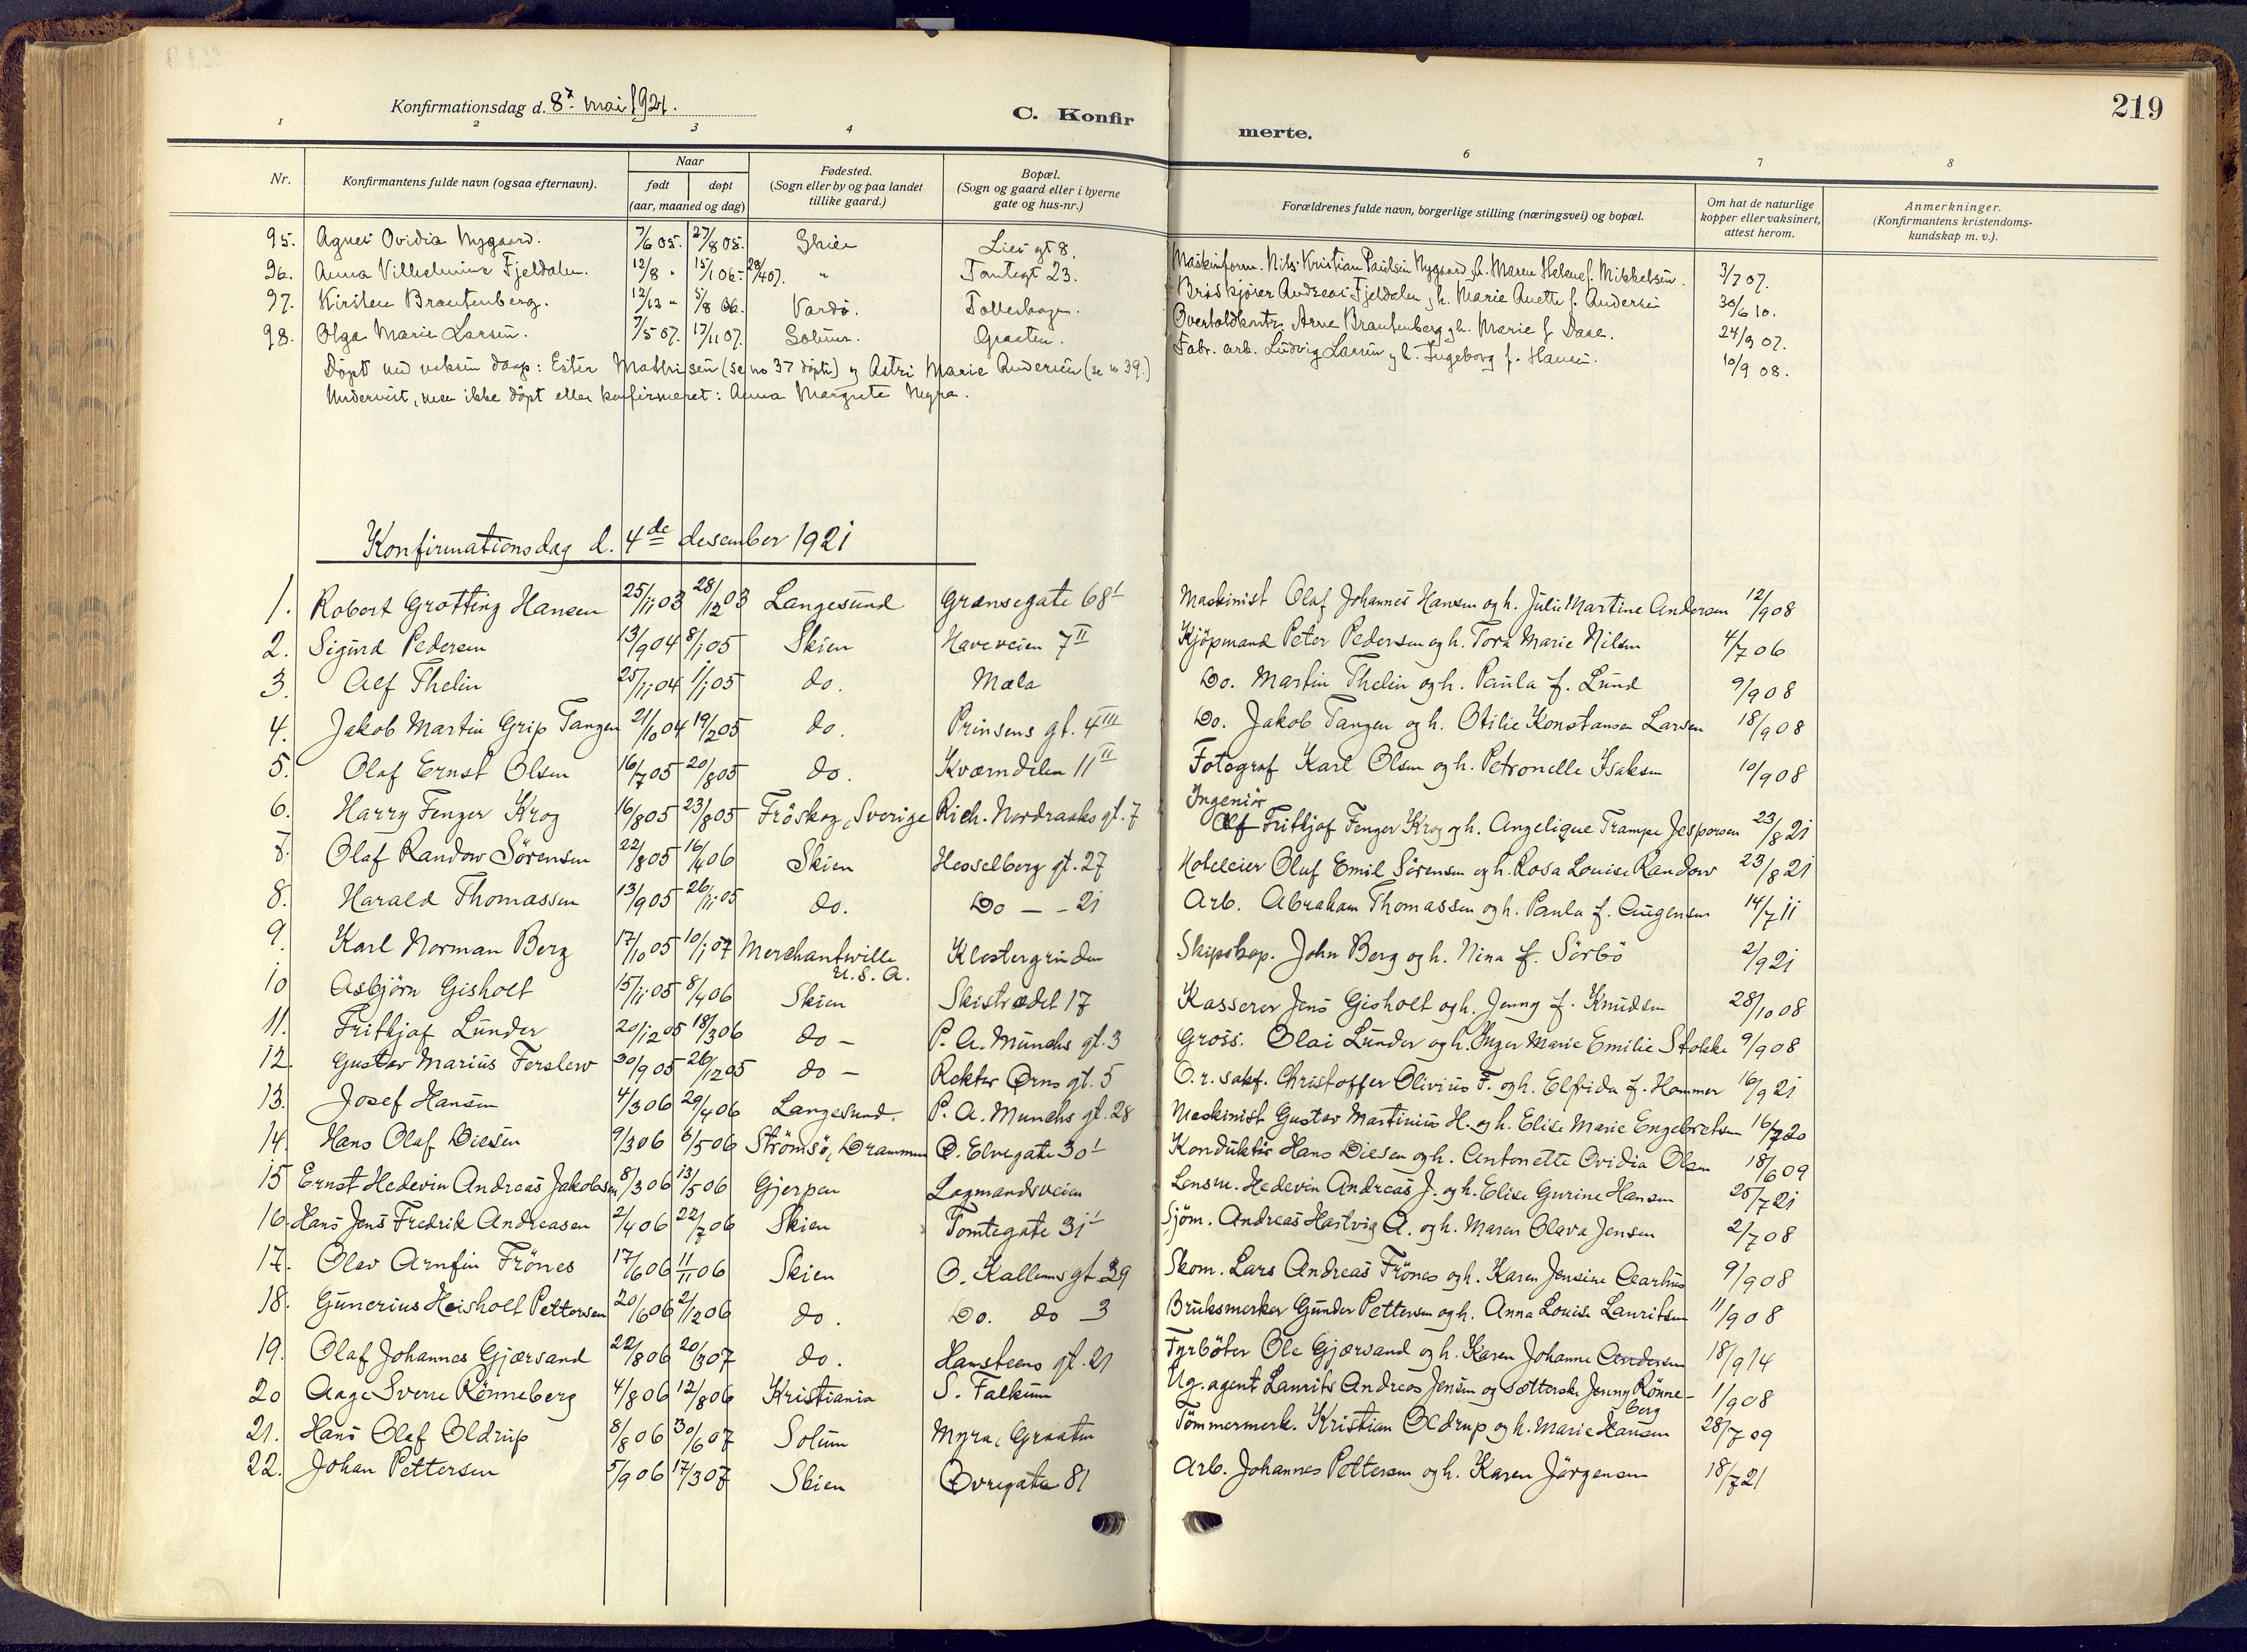 219
Konfirmationsdag d. 8de mai 1921.
C. Konfirmerte.
1 2 3 4 6 7 8
Nr. Konfirmantens fulde navn (ogsaa efternavn). Naar født døpt (aar, maaned og dag) Fødested. (Sogn eller by og paa landet tillike gaard.) Bopæl. (Sogn og gaard eller i byerne gate og hus-nr.) Forældrenes fulde navn, borgerlige stilling (næringsvei) og bopæl. Om hat de naturlige kopper eller vaksinert, attest herom. Anmerkninger. (Konfirmantens kristendoms-kundskap m. v.).
95. Agnes Ovidia Nygaard. 7/6 05. 27/8 05. Skien Lies gt 8. Maskinform. Nils Kristian Paulsen Nygaard og h. Maren Helene f. Mikkelsen. 3/7 07.
96. Anna Vilhelmine Fjeldalen. 12/8 " 15/1 06 - 28/4 07. " Tomtegt 23. Andreas Fjeldalen og h. Marie Anette f. Andersen 30/6 10.
97. Kirsten Brautenberg. 12/12 " 5/8 06. Vardø. Tollerhagen. Overtoldkontr. Arne Brautenberg og h. Marie f. Daae. 24/9 07.
98. Olga Marie Larsen. 7/5 07. 17/11 07. Solum. Graaten. Fabr. arb. Ludvig Larsen og h. Ingeborg f. Hansen. 10/9 08.
Døpt ved voksen daap: Ester Mathisen (se no 37 døpte) og Astri Marie Andersen (se no 39.)
Undervist, men ikke döpt eller konfirmeret: Anna Margrete Myra.
Konfirmationsdag d. 4de desember 1921
1. Robert Grotting Hansen 25/11 03 28/12 03 Langesund Grænsegate 68 I Maskinist Olaf Johannes Hansen og h. Julie Martine Andersen 12/9 08
2. Sigurd Pedersen 13/9 04 8/1 05 Skien Haveveien 7 II Kjöpmand Peter Pedersen og h. Tora Marie Nilsen 4/7 06
3. Alf Thelin 25/11 04 1/1 05 do. Mæla Do. Martin Thelin og h. Paula f. Lund 9/9 08
4. Jakob Martin Grip Tangen 21/10 04 19/2 05 do. Prinsens gt. 4 III Do. Jakob Tangen og h. Otilie Konstanse Larsen 18/9 08
5. Olaf Ernst Olsen 16/7 05 20/8 05 do. Kværndelen 11 II Fotograf Karl Olsen og h. Petronelle Isaksen 10/9 08
6. Harry Fenger Krog 16/8 05 23/8 05 Fröskog, Sverige Rich. Nordraaks gt. 7 Ingeniör Fritjof Fenger Krog og h. Angelique Trampe Jespersen 23/8 21
7. Olaf Randow Sörensen 22/8 05 16/4 06 Skien Hesselberg gt. 27 Hoteleier Oluf Emil Sörensen og h. Rosa Louise Randow 23/8 21
8. Harald Thomassen 13/9 05 26/11 05 do. Do — - 21 Arb. Abraham Thomassen og h. Paula f. Augensen 14/7 11
9. Karl Norman Berg 17/10 05 10/1 07 Merchantville U.S.A. Klostergrunden Skipskap. John Berg og h. Nina f. Sörbö 2/9 21
10 Asbjörn Gisholt 15/11 05 8/4 06 Skien Skistrædet 17 Kasserer Jens Gisholt og h. Jenny f. Knudsen 28/10 08
11. Frithjof Lunder 20/12 05 18/3 06 do - P. A. Munchs gt. 3 Gross. Olai Lunder og h. Inger Marie Emilie Stokke 9/9 08
12. Gustav Marius Ferslew 30/9 05 26/12 05 do - Rektor Ørns gt. 5 O. r. sakf. Christoffer Olivius F. og h. Elfrida f. Hammer 16/9 21
13. Josef Hansen 4/3 06 29/4 06 Langesund. P. A. Munchs gt. 28 Maskinist Gustav Martinius H. og h. Elise Marie Engebretsen 16/7 20
14. Hans Olaf Diesen 9/3 06 6/5 06 Strömsö, Drammen Ø. Elvegate 30 I Konduktör Hans Diesen og h. Antonette Ovidia Olsen 18/6 09
15 Ernst Hedevin Andreas Jakobsen 8/3 06 13/5 06 Gjerpen Lagmandsveien Lensm. Hedevin Andreas J. og h. Elise Gurine Hansen 25/7 21
16. Hans Jens Fredrik Andreasen 2/4 06 22/7 06 Skien Tomtegate 31 I Sjöm. Andreas Hartvig A. og h. Maren Olava Jensen 2/7 08
17. Olav Arnfin Frönes 17/6 06 11/11 06 Skien O. Kallems gt. 39 Skom. Lars Andreas Frönes og h. Karen Jensine Aarhus 9/9 08
18. Gunerius Heisholt Pettersen 20/6 06 2/12 06 do. Do. do 3 Bruksmerker Gunder Pettersen og h. Anna Louise Lauritsen 11/9 08
19. Olaf Johannes Gjærsand 22/8 06 20/3 07 do. Hansteens gt. 21 Fyrböter Ole Gjærsand og h. Karen Johanne Andersen 18/9 14
20 Aage Sverre Rönneberg 4/8 06 12/8 06 Kristiania S. Falkum Ag. agent Laurits Andreas Jensen og Jenny Rönneberg 1/9 08
21. Hans Olaf Oldrup 8/8 06 30/6 07 Solum Myra, Graaten Tömmermerk. Kristian Oldrup og h. Marie Hansen 28/7 09
22. Johan Pettersen 5/9 06 17/3 07 Skien Övregate 81 Arb. Johannes Pettersen og h. Karen Jörgensen 18/7 21